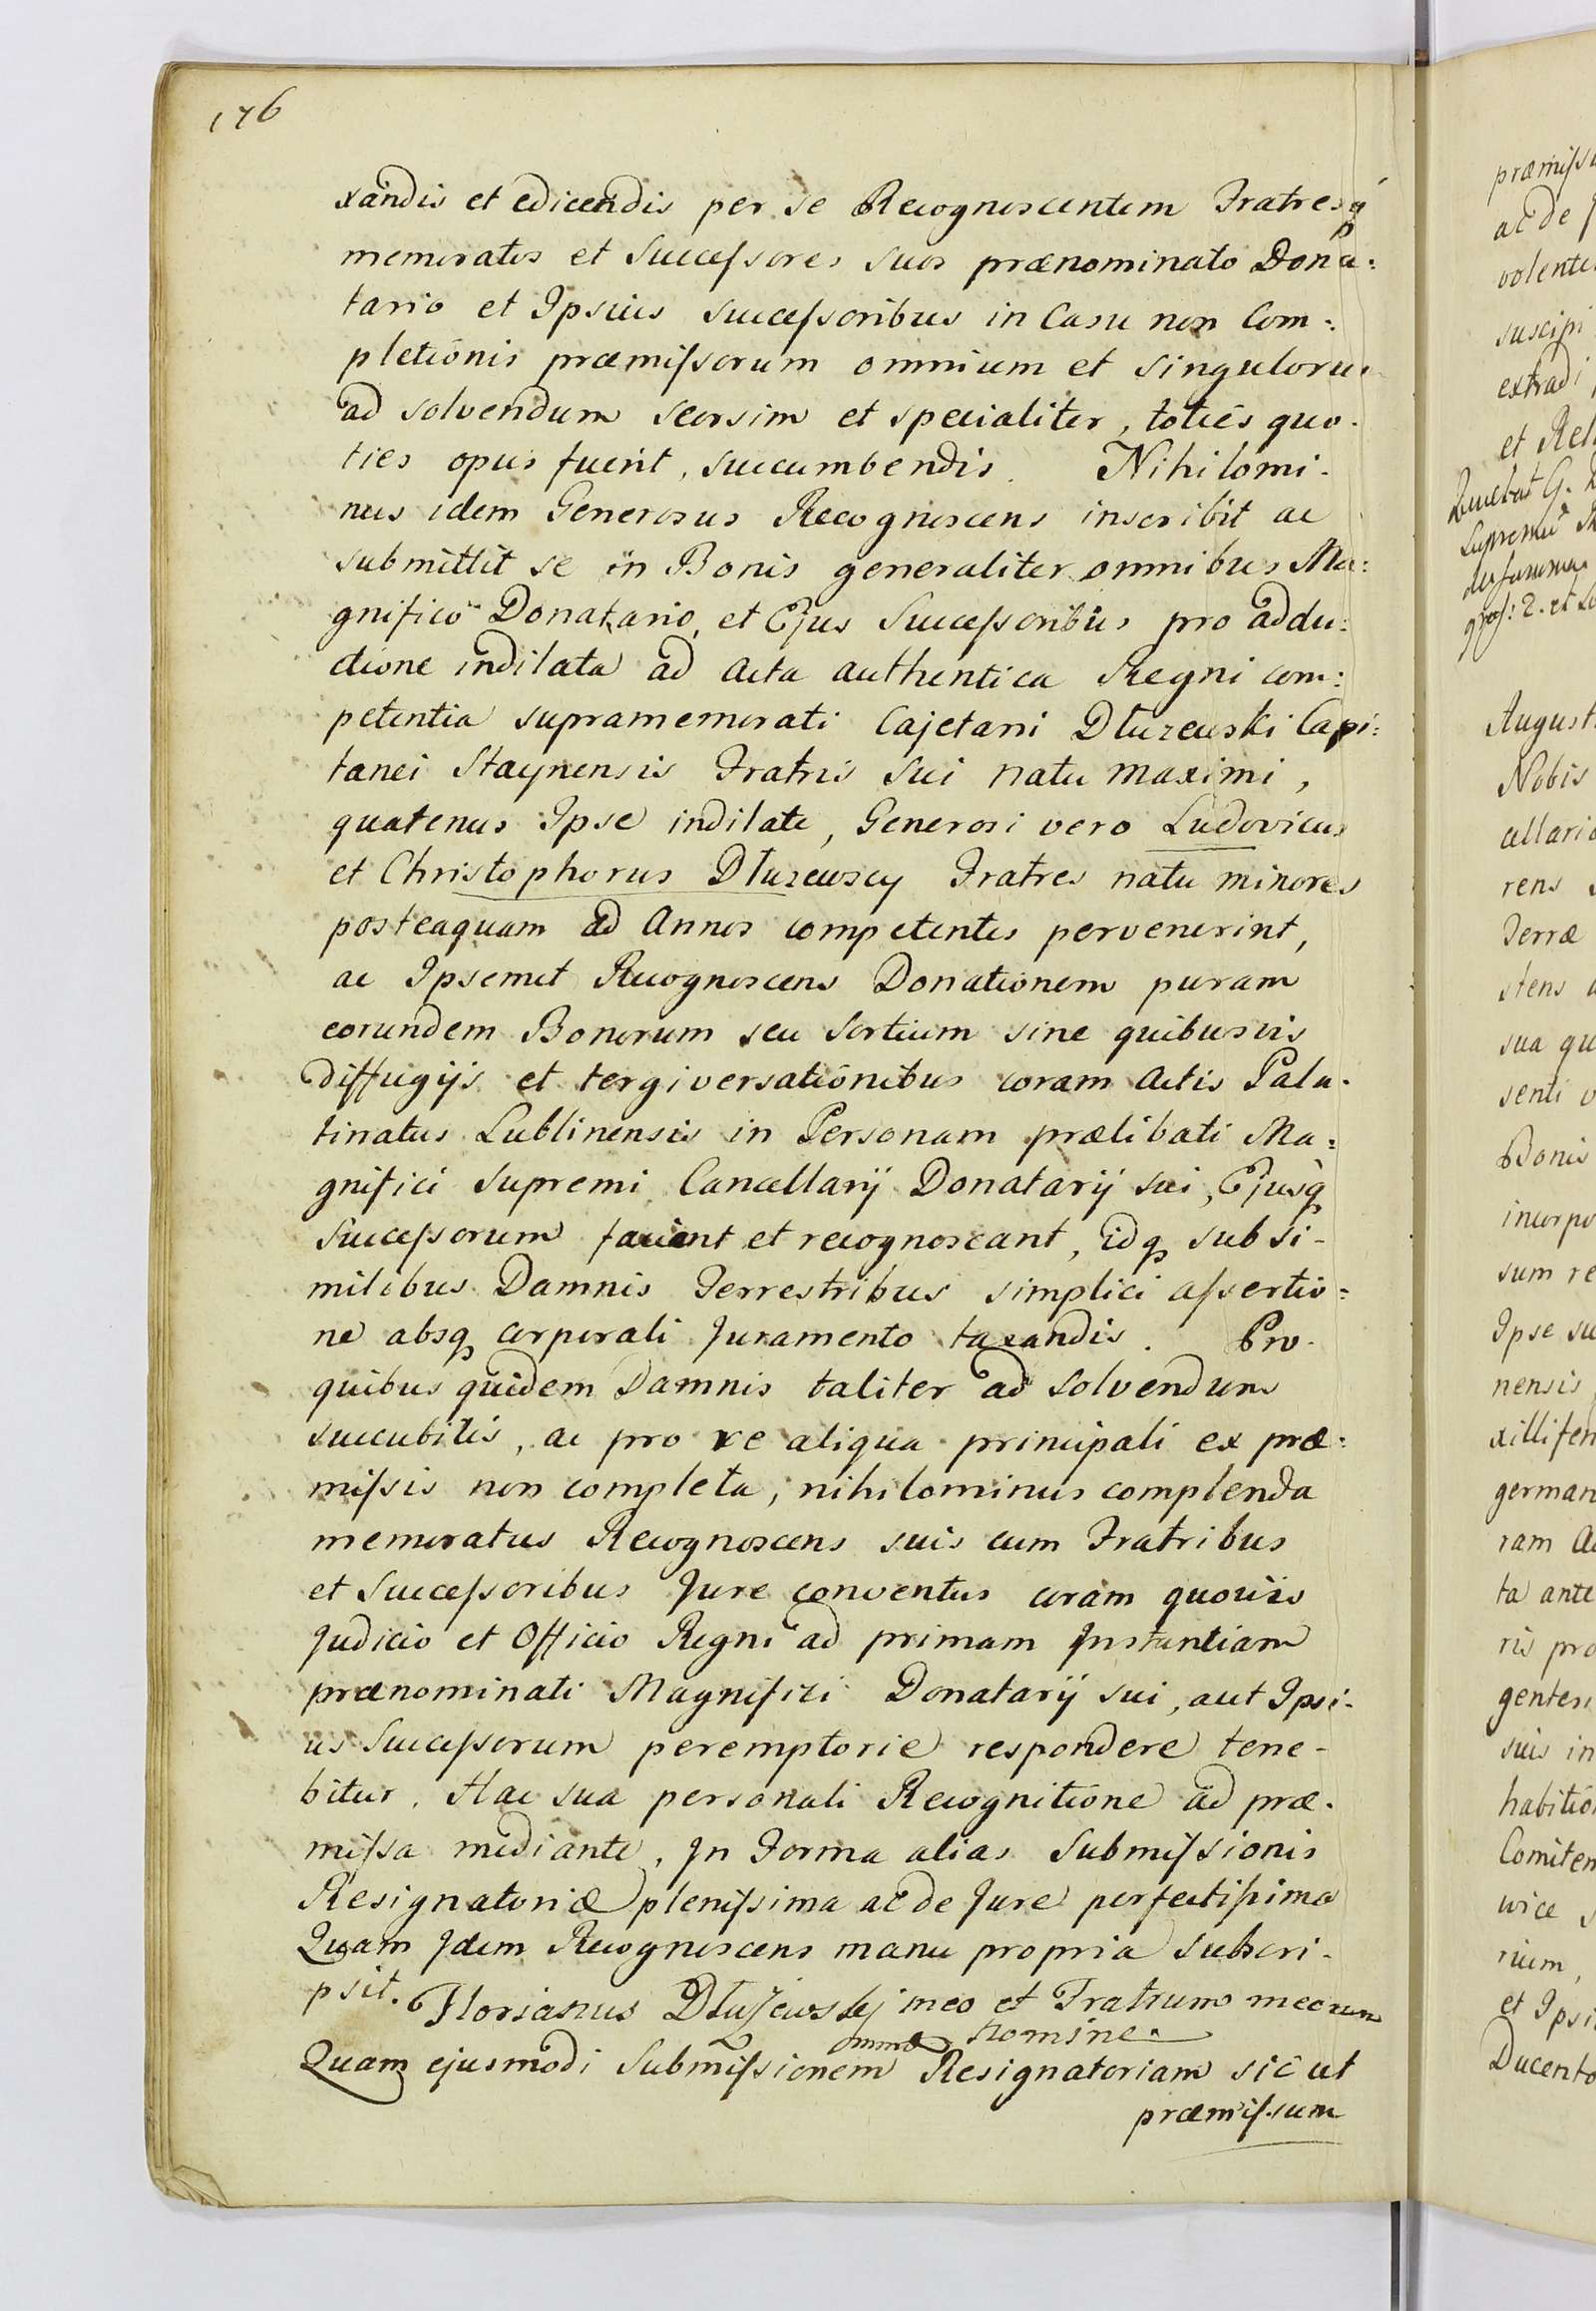 176
xandis et edicendis per se Recognoscentem Fratresq́
memoratos et Successores suos prænominato Dona:
tario et Ipsius successoribus in Casu non Com:
pletionis præmissorum omnium et singuloru
ad solvendum seorsim et specialiter, toties quo-
ties opus fuerit, succumbendis. Nihilomi-
nus idem Generosus Recognoscens inscribit ac
submittit se in Bonis generaliter omnibus Ma:
gnifico Donatario, et Ejus Successoribus pro addu:
ctione indilata ad Acta authentica Regni com:
petentia supramemorati Cajetani Dłuzewski Capi:
tanei Staynensis Fratris sui natu maximi,
quatenus Ipse indilate, Generosi vero Ludovicus
et Christophorus Dłuzewscy Fratres natu minores
posteaquam ad Annos competentes pervenerint,
ac Ipsemet Recognoscens Donationem puram
eorundem Bonorum seu Sortium sine quibusvis
diffugijs et tergiversationibus coram Actis Pala-
tinatus Lublinensis in Personam prælibati Ma:
gnifici Supremi Cancellarij Donatarij sui, Ejusq
Successorum faciant et recognoscant, idq sub si-
milibus Damnis Terrestribus simplici assertio:
ne absq corporali Juramento taxandis. Pro-
quibus quidem Damnis taliter ad solvendum
succubitis, ac pro re aliqua principali ex præ:
missis non completa, nihilominus complenda
memoratus Recognoscens suis cum Fratribus
et Successoribus Jure conventus coram quovis
Judicio et Officio Regni ad primam Instantiam
prænominati Magnifici Donatarij sui, aut Ipsi-
us Successorum peremptorie respondere tene-
bitur. Hac sua personali Recognitione ad præ-
missa mediante. In Forma alias Submissionis
Resignatoriæ plenissima ac de Jure perfectissima
Quam Idem Recognoscens manu propria subscri-
psit. Florianus Dłużewskj meo et Fratrum meorum
omnē Nomine.
Quam ejusmodi Submissionem Resignatoriam sic ut
præmissum
præmiss
ac de
volente
suscipi
extradi
et Rel
Ducebat G.
Supremū
gros: 2. et
August
Nobis
cellario
rens
Terræ
stens
sua qu
senti
Bonis
incorpo
sum re
Ipse su
nensis
xillifer
german
ram Ac
ta ante
ris pro
genten
suis in
habitio
Comiten
vice
rium,
et Ipsi
Ducento